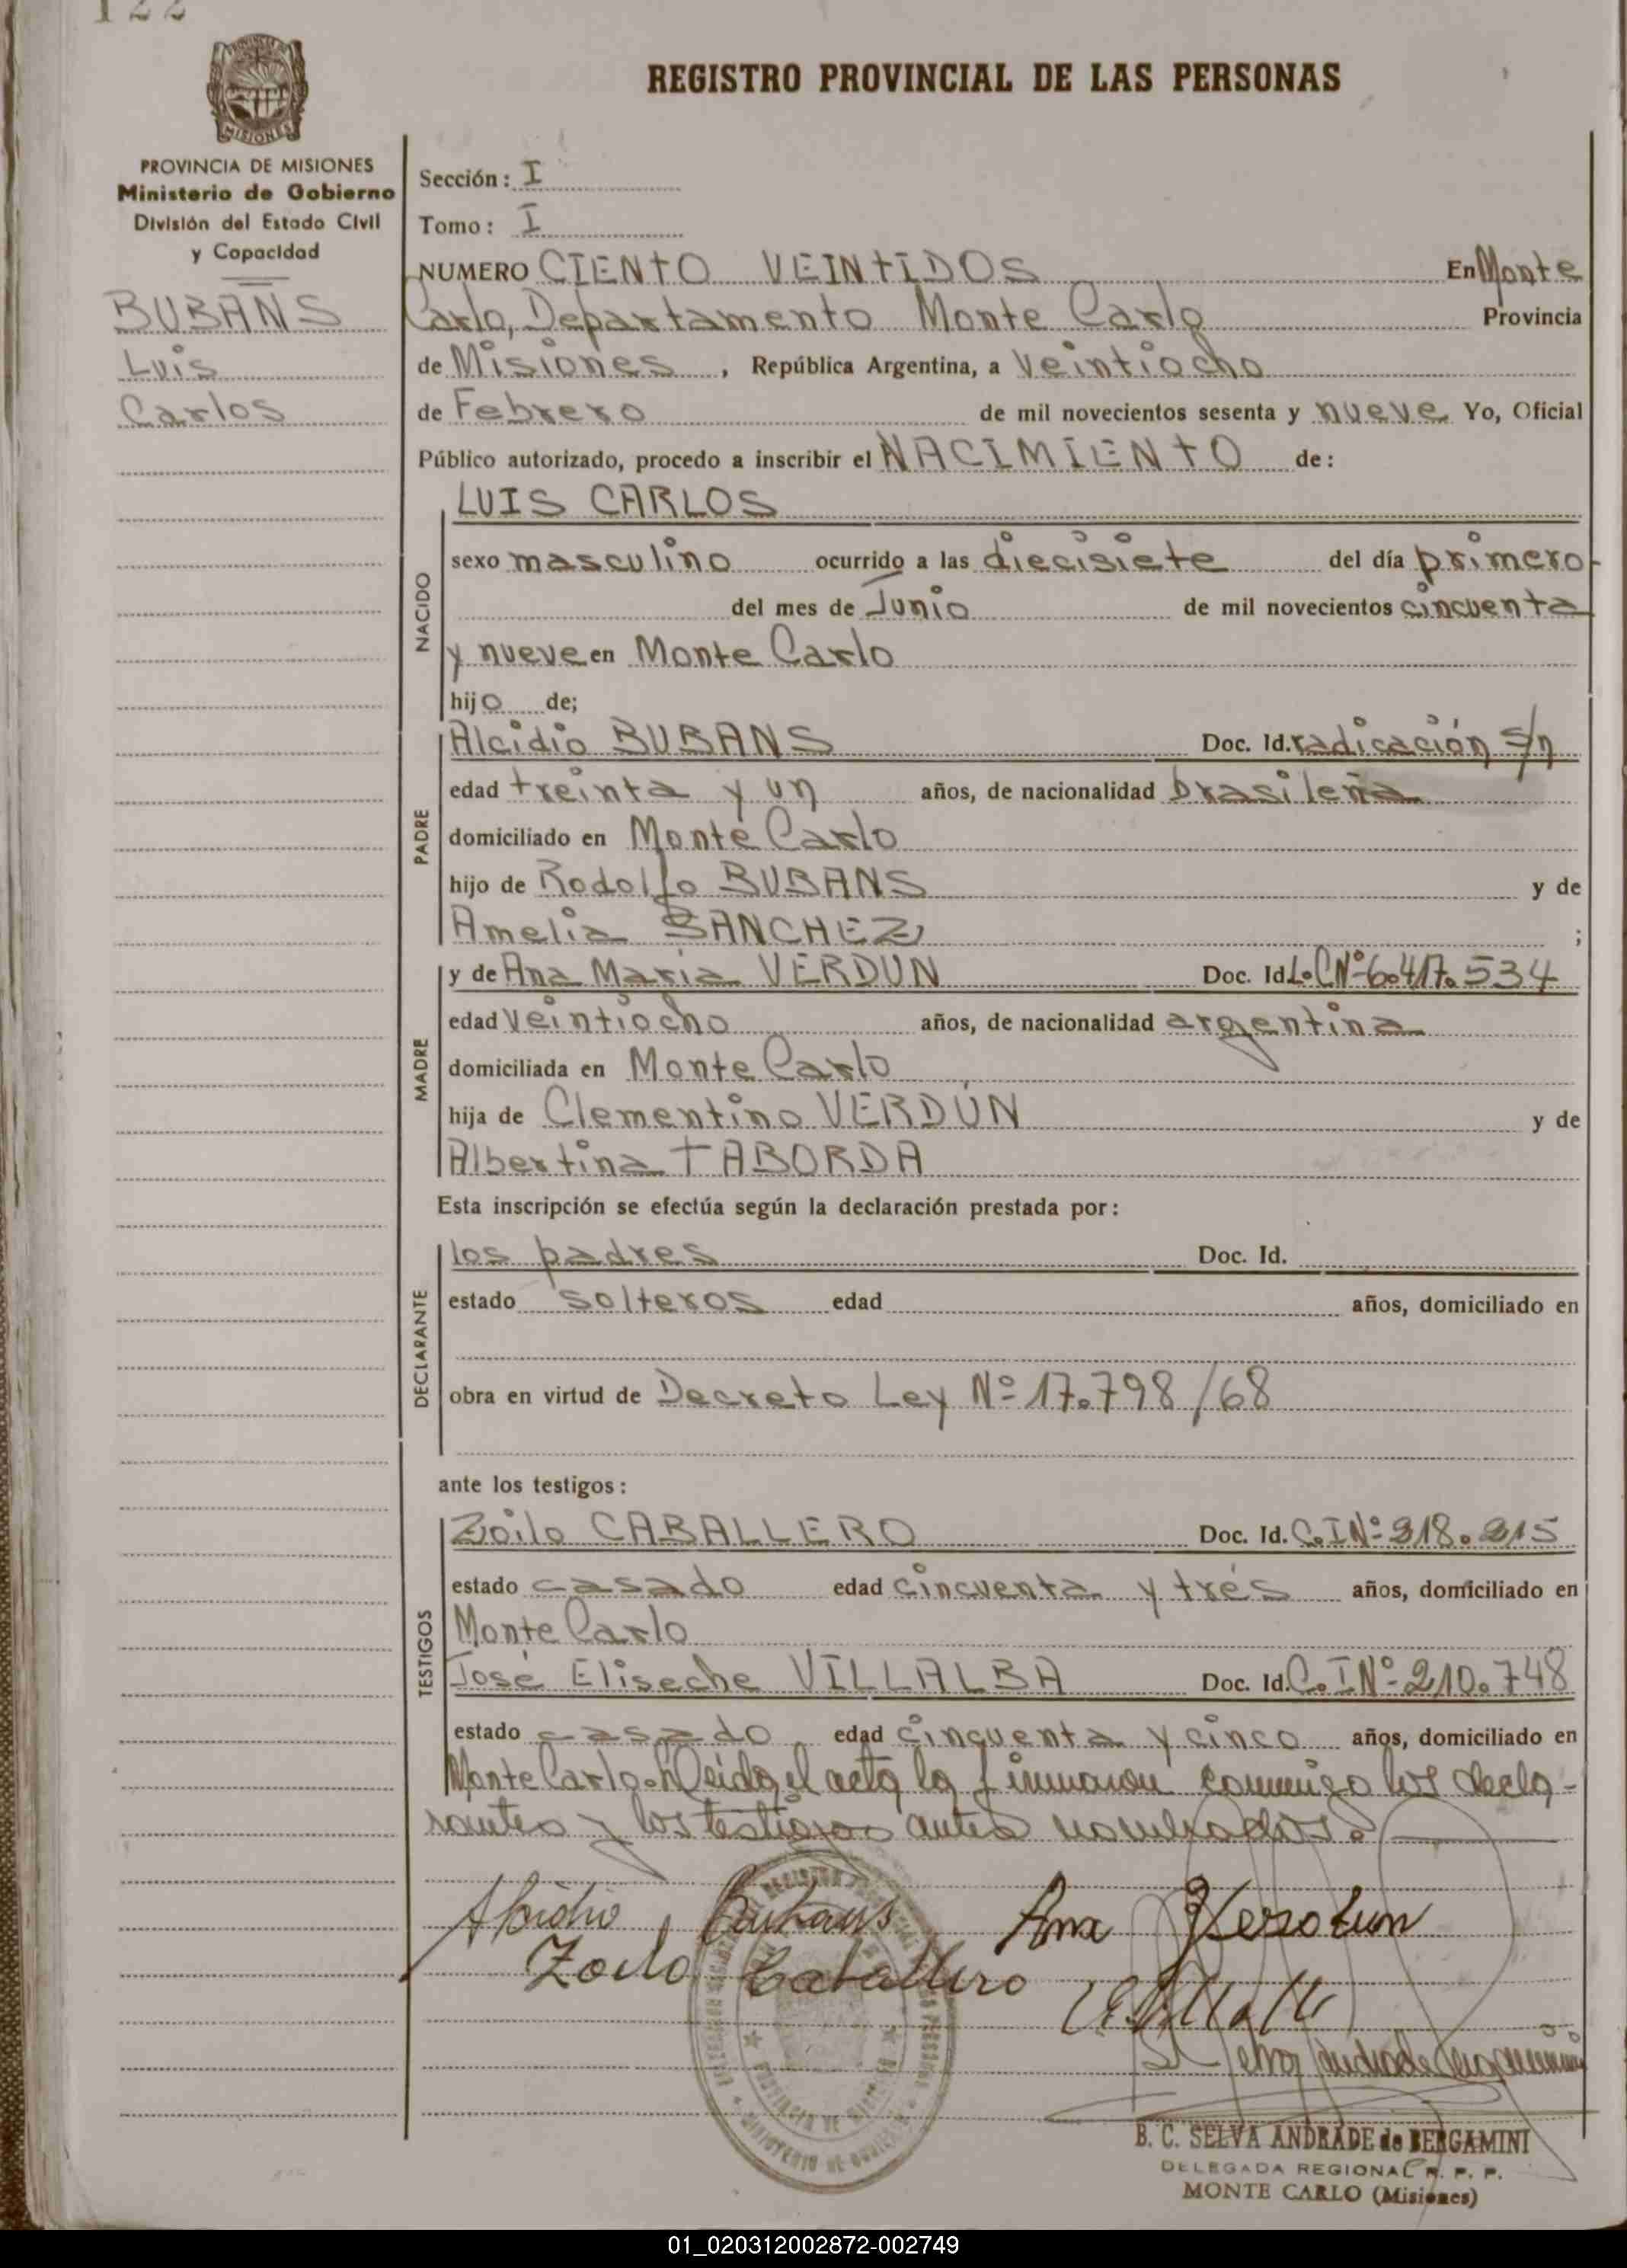 122
MISIONES
REGISTRO PROVINCIAL DE LAS PERSONAS
PROVINCIA DE MISIONES
Ministerio de Gobierno
División del Estado Civil
y Capacidad
BUBANS
Luis
Carlos
Sección: I
Tomo: I
NUMERO CIENTO VEINTIDOS En Monte
Carlo, Departamento Monte Carlo Provincia
de Misiones, República Argentina, a veintiocho
de Febrero de mil novecientos sesenta y nueve Yo, Oficial
Público autorizado, procedo a inscribir el NACIMIENTO de:
NACIDO
LUIS CARLOS
sexo masculino ocurrido a las diecisiete del día primero
del mes de Junio de mil novecientos cincuenta
y nueve en Monte Carlo
hijo de;
PADRE
Alcidio BUBANS Doc. Id. radicación s/n
edad treinta y un años, de nacionalidad brasileña
domiciliado en Monte Carlo
hijo de Rodolfo BUBANS y de
Amelia SANCHEZ ;
MADRE
y de Ana María VERDUN Doc. Id L.C Nº 6.417.534
edad veintiocho años, de nacionalidad argentina
domiciliada en Monte Carlo
hija de Clementino VERDÚN y de
Albertina TABORDA
Esta inscripción se efectúa según la declaración prestada por:
DECLARANTE
los padres Doc. Id.
estado solteros edad años, domiciliado en
obra en virtud de Decreto Ley Nº 17.798/68
ante los testigos:
TESTIGOS
Zoilo CABALLERO Doc. Id. C.I Nº 318.215
estado casado edad cincuenta y trés años, domiciliado en
Monte Carlo
José Eliseche VILLALBA Doc. Id. C.I Nº 210.748
estado casado edad cincuenta y cinco años, domiciliado en
Monte Carlo. Leida el acta la firmaron conmigo los decla-
rantes y los testigos antes nombrados.
Alcidio Bubans Ana Verdun
Zoilo Caballero
B. C. SELVA ANDRADE de BERGAMINI
DELEGADA REGIONAL R. P. P.
MONTE CARLO (Misiones)
01_020312002872-002749